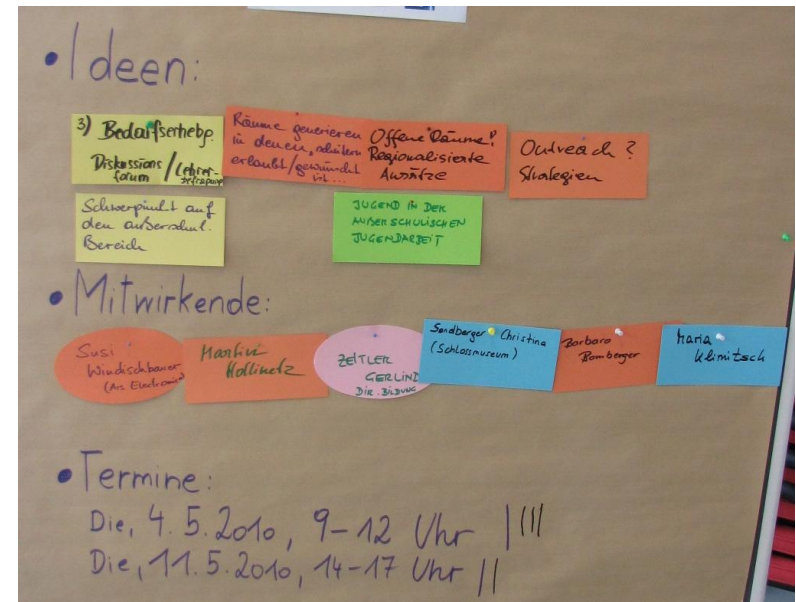 • Ideen:
3) Bedarfserhebg.
Diskussions
forum / Lehrer-
befragung
Räume generieren
in denen, scheitern
erlaubt/gewünscht
ist...
Offene "Räume"?
Regionalisierte
Ansätze
Outreach?
Strategien
Schwerpunkt auf
den außerschul.
Bereich
JUGEND IN DER
AUßERSCHULISCHEN
JUGENDARBEIT
• Mitwirkende:
Susi
Windischbauer
(Ars Electronica)
Martin
Hollinetz
ZEITLER
GERLIND
DIR. BILDUNG
Sandberger Christina
(Schlossmuseum)
Barbara
Bamberger
Maria
Klimitsch
• Termine:
Die, 4. 5. 2010, 9-12 Uhr ||||
Die, 11. 5. 2010, 14-17 Uhr ||